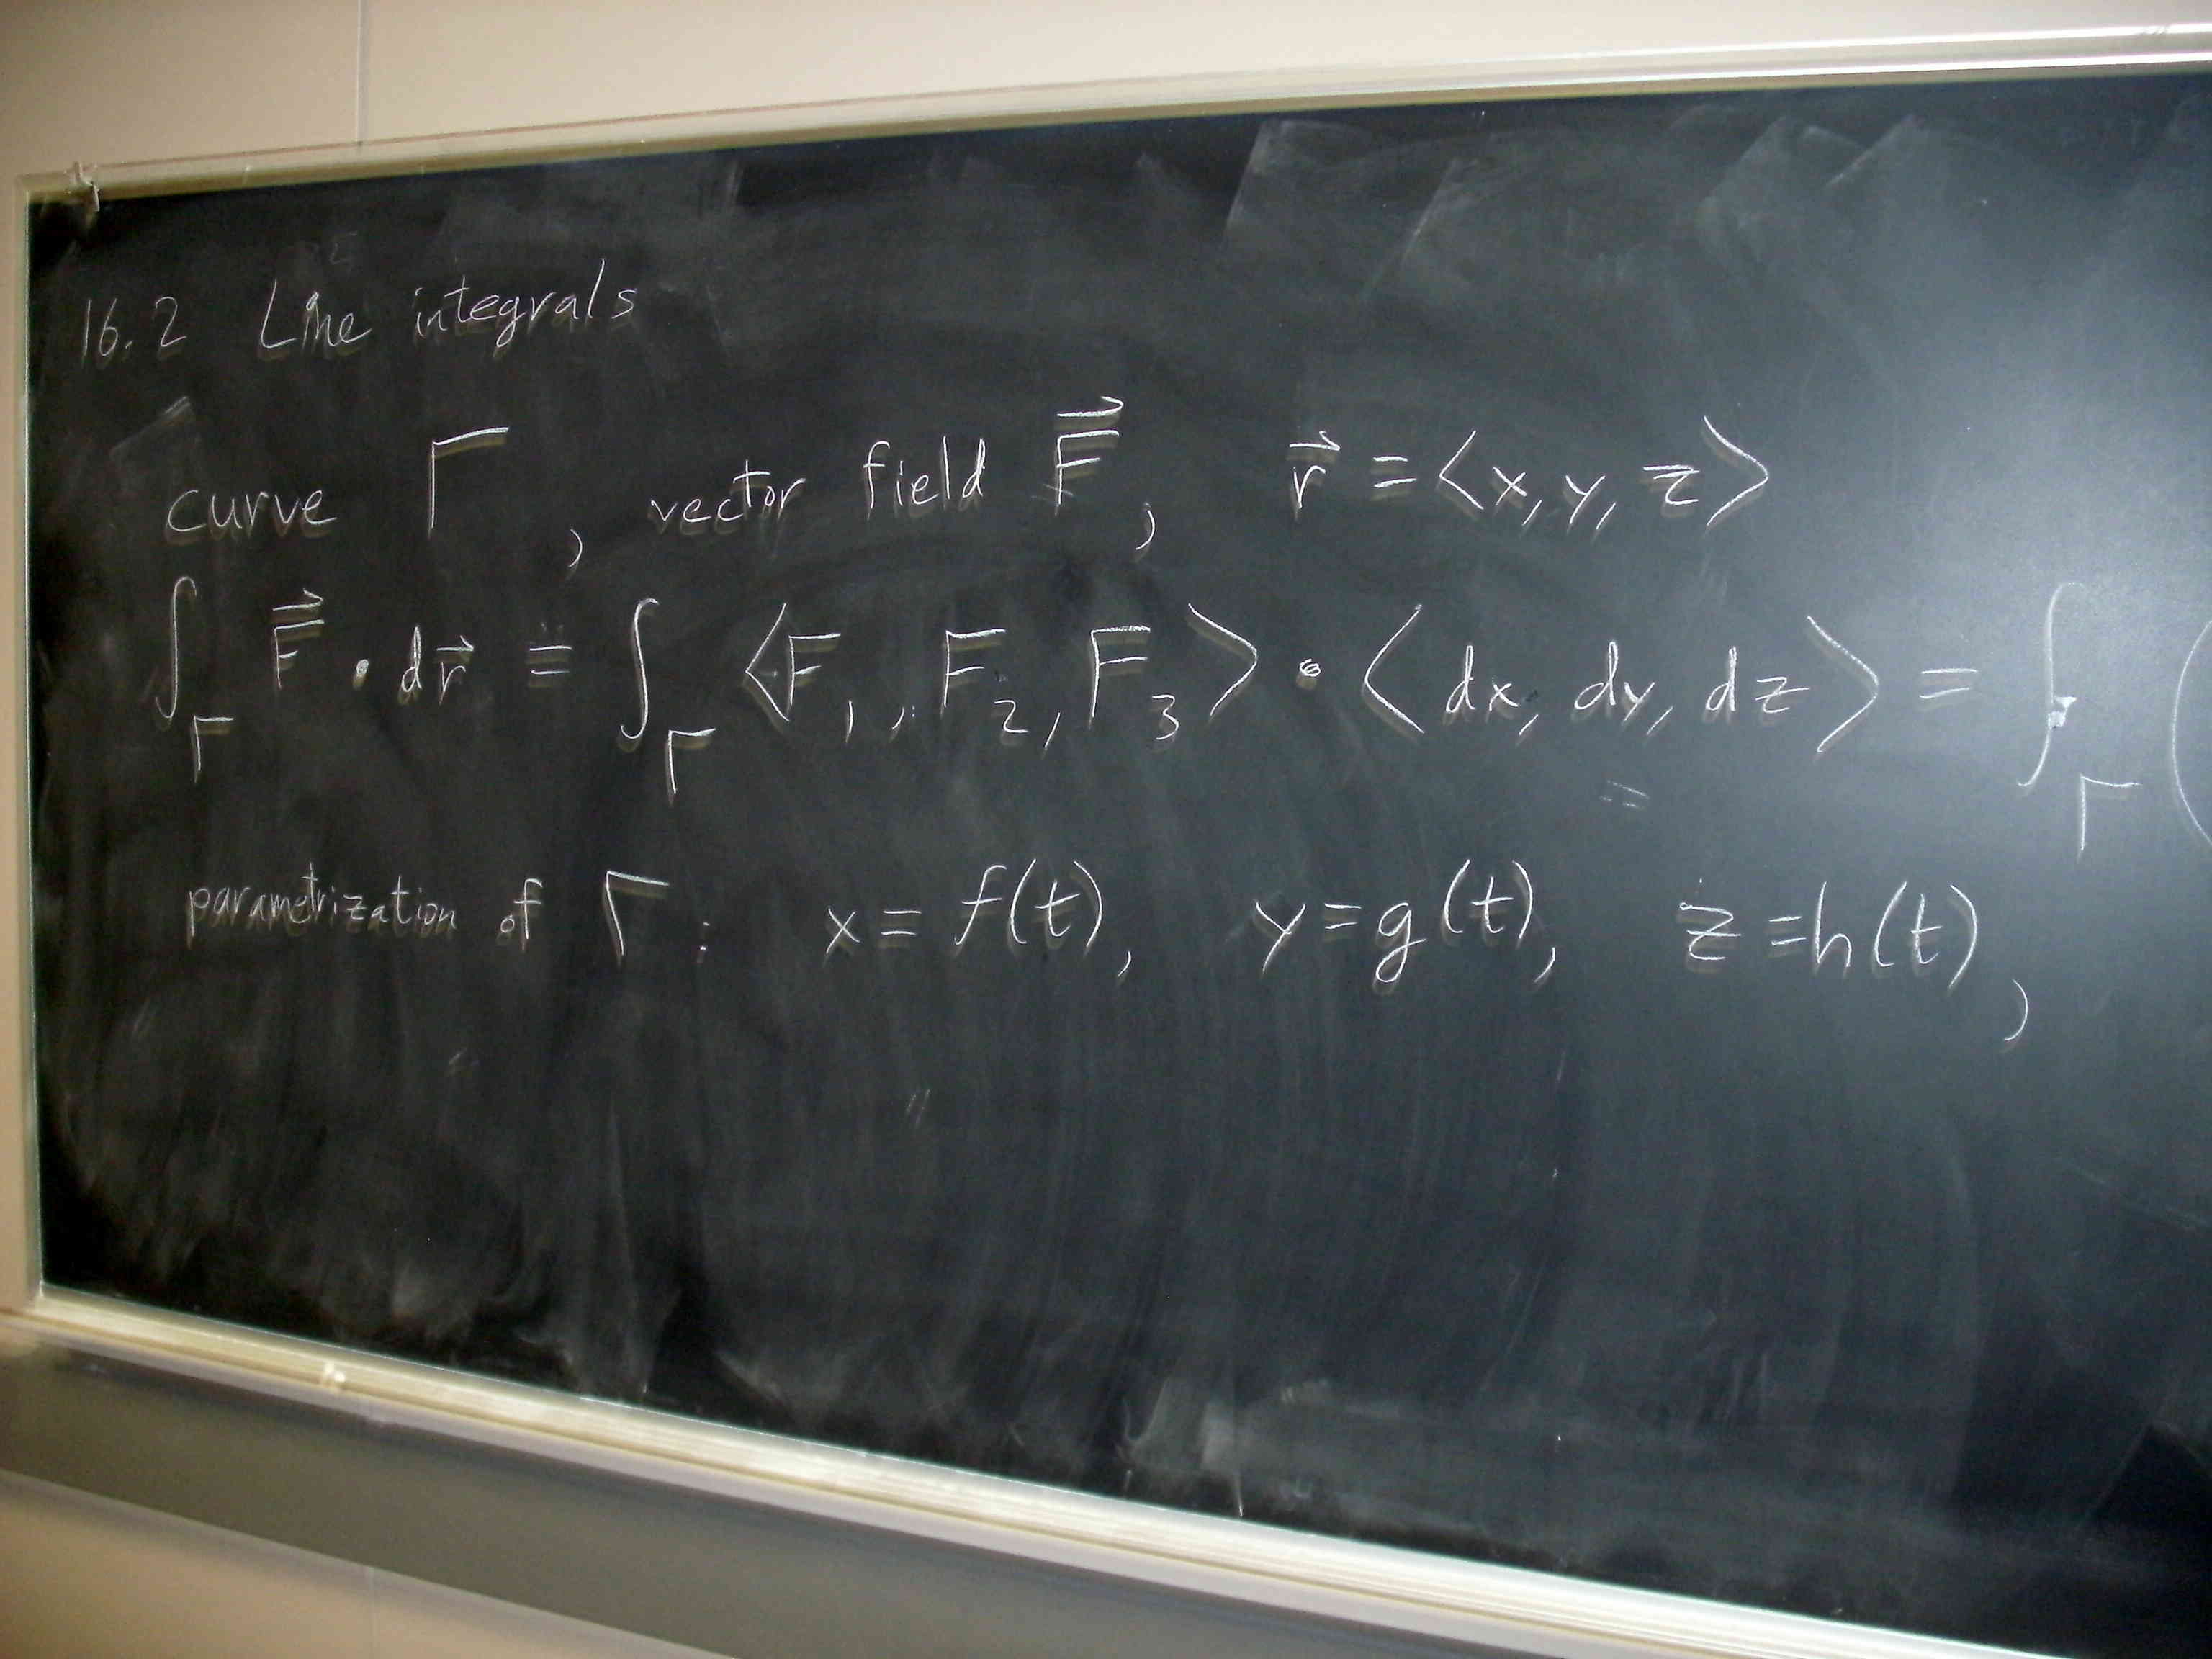 16.2 Line integrals
curve Γ, vector field F⃗, r⃗ = <x, y, z>
∫_Γ F⃗ • dr⃗ = ∫_Γ <F₁, F₂, F₃> • <dx, dy, dz> = ∫_Γ (
parametrization of Γ: x = f(t), y = g(t), z = h(t),